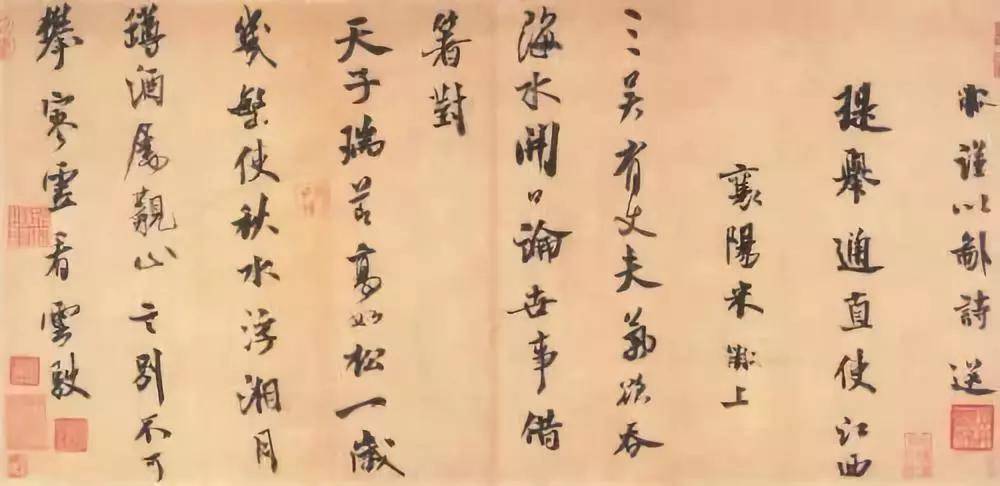 黻謹以鄙詩送
提舉通直使江西
襄陽米黻上
三吳有丈夫氣欲吞
海水開口論世事借
箸對
天子瑞節高如松一歲
幾繁使秋水浮湘月
罇酒屢覯止言別不可
攀寒雲看雲駛